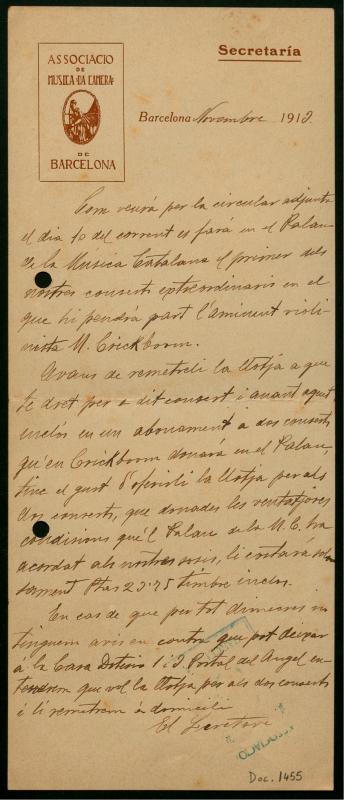 ASSOCIACIO
DE
MUSICA DA CAMERA
DE
BARCELONA
Secretaría
Barcelona Novembre 1913.
Com veurá per la circular adjunta
el dia 10 del corrent es fará en el Palau
de la Música Catalana el primer dels
nostres concerts extraordinaris en el
que hi pendrá part l'aminent violi-
nista M. Crickboom.
Avans de remetreli la llotja a que
té dret per a dit concert i anant aquest
inclós en un abonament a dos concerts
qu'en Crickboom donará en el Palau,
tinc el gust d'oferirli la llotja per als
dos concerts, que donades les ventatjoses
condicions qu'el Palau de la M. C. ha
acordat als nostres socis, li costará sola-
ment Ptas 23'75 timbre inclos.
En cas de que per tot dimecres no
tinguem avis en contra que pot deixar
á la Casa Dotesio 1 i 3 Portal del Angel en-
tendrem que vol la llotja per als dos concerts
i li remetrem á domicili
El Secretari
Doc. 1455